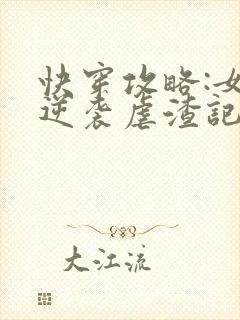 快穿攻略:女
逆袭虐渣記
大江流